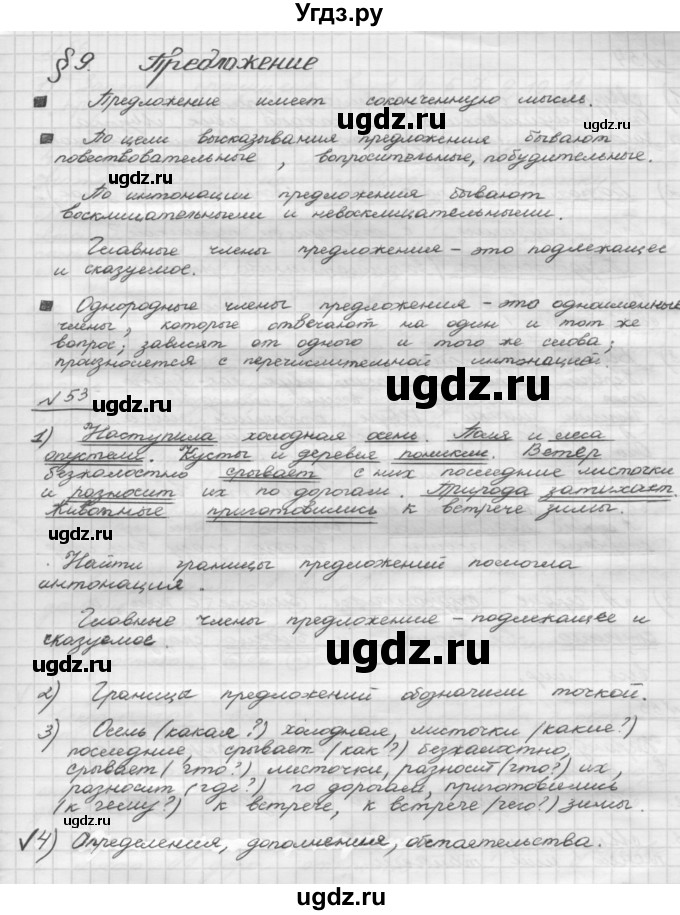 Угдз.ру
§ 9. Предложение
Предложение имеет законченную мысль.
По цели высказывания предложения бывают
повествовательные, вопросительные, побудительные.
По интонации предложения бывают
восклицательными и невосклицательными.
Главные члены предложения – это подлежащее
и сказуемое.
Однородные члены предложения – это одноименные
члены, которые отвечают на один и тот же
вопрос; зависят от одного и того же слова;
произносятся с перечислительной интонацией.
№ 53
1) Наступила холодная осень. Поля и леса
опустели. Кусты и деревья поникли. Ветер
безжалостно срывает с них последние листочки
и разносит их по дорогам. Природа затихает.
Животные приготовились к встрече зимы.
Найти границы предложений помогла
интонация.
Главные члены предложения – подлежащее и
сказуемое.
2) Границы предложений обозначили точкой.
3) Осень (какая?) холодная, листочки (какие?)
последние, срывает (как?) безжалостно,
срывает (что?) листочки, разносит (что?) их,
разносит (где?) по дорогам, приготовились
(к чему?) к встрече, к встрече (чего?) зимы.
√4) Определения, дополнения, обстаятельства.
ugdz.ru
ugdz.ru
ugdz.ru
ugdz.ru
ugdz.ru
ugdz.ru
ugdz.ru
ugdz.ru
ugdz.ru
ugdz.ru
ugdz.ru
ugdz.ru
ugdz.ru
ugdz.ru